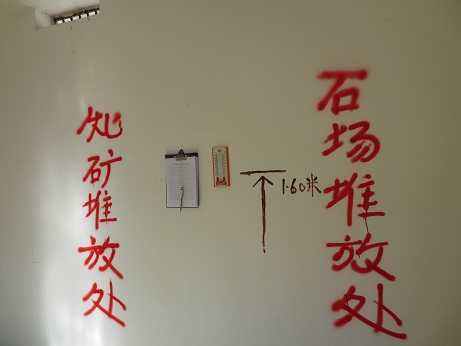 矿堆放处
1.60米
石场堆放处